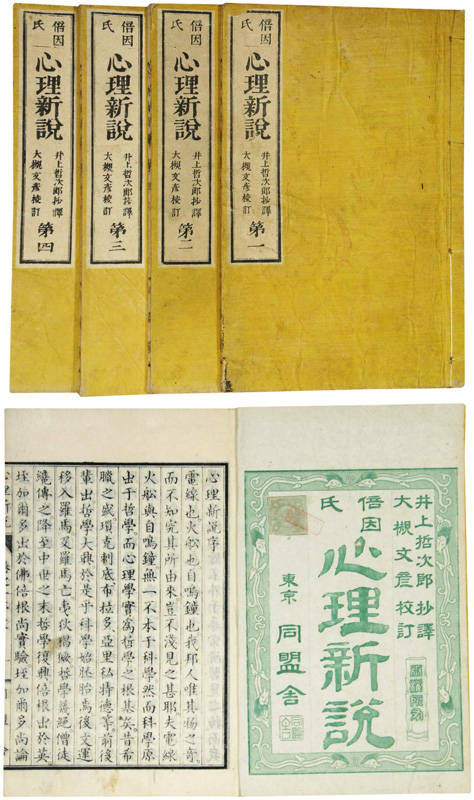 倍因氏
心理新說
井上哲次郎抄譯
大槻文彥校訂
第一
倍因氏
心理新說
井上哲次郎抄譯
大槻文彥校訂
第二
倍因氏
心理新說
井上哲次郎抄譯
大槻文彥校訂
第三
倍因氏
心理新說
井上哲次郎抄譯
大槻文彥校訂
第四
井上哲次郎抄譯
大槻文彥校訂
倍因氏
心理新說
東京 同盟舍
心理新說序
電線也火船也自鳴鐘也我邦人唯其物之奇
而不知究其所由來豈不淺見之甚耶夫電線
火船與自鳴鐘無一不本于科學然而科學原
出于哲學而心理學實為哲學之根基矣昔希
臘之盛瑣克剌底布拉多亞里私特德等前後
輩出哲學大興於是乎科學始胚胎焉後文運
移入羅馬及羅馬亡夷狄猖獗哲學蕩絕僧徒
纔傳之降至中世之末哲學復興倍根出於英
垤加爾多出於佛倍根尚實驗垤加爾多尚論